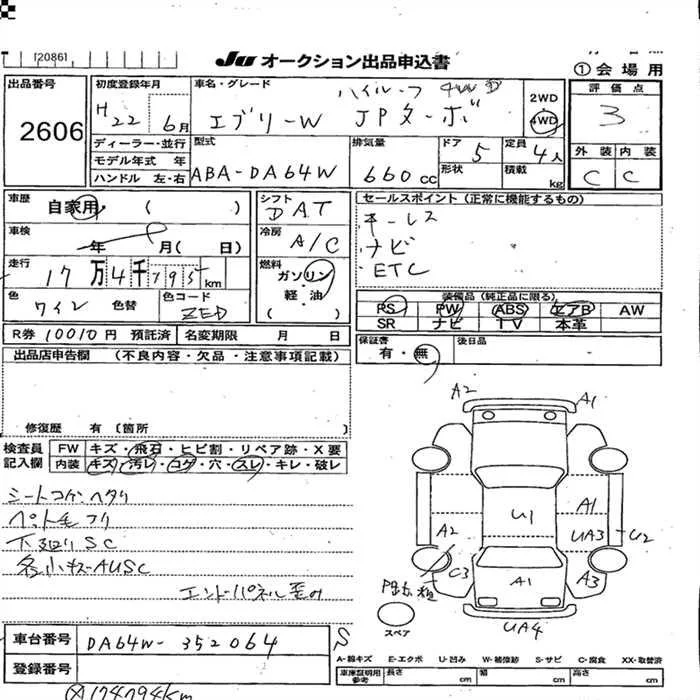 [20861
JU オークション出品申込書
①会場用
出品番号
2606
初度登録年月
H22 6月
車名・グレード
ハイルーフ 4WD
エブリーW JPターボ
2WD
4WD
評価点
3
外装 内装
C C
ディーラー・並行
モデル年式 年
ハンドル 左・右
型式
ABA-DA64W
排気量
660cc
ドア 5
形状
定員 4人
積載 kg
車歴 自家用 ( )
車検 年 月( 日)
走行 17万4千795km
色 ワイン 色替
色コード ZED
シフト DAT
冷房 A/C
燃料 ガソリン
軽・油
( )
セールスポイント(正常に機能するもの)
キーレス
ナビ
ETC
装備品(純正品に限る)
PS PW ABS エアB AW
SR ナビ TV 本革
R券 10010円 預託済 名変期限 月 日
保証書
有・無
後日品
出品店申告欄 (不良内容・欠品・注意事項記載)
修復歴 有〔箇所 )
検査員
記入欄
FW キズ・飛石・ヒビ割・リペア跡・X要
内装 キズ・汚レ・コゲ・穴・スレ・キレ・破レ
シートコゲ・ヘタリ
ペット毛アリ
下廻りSC
各小キズAUSC
エンドパネル歪み
A2 A1
A1
U1
A2 UA3 U2
C3 A1 A3
UA4
スペア
S
車台番号 DA64W-352064
登録番号
A-線キズ E-エクボ U-凹み W-補修跡 S-サビ C-腐食 XX-取替済
車庫証明用
参考
長さ cm 幅 cm 高さ cm
174794km